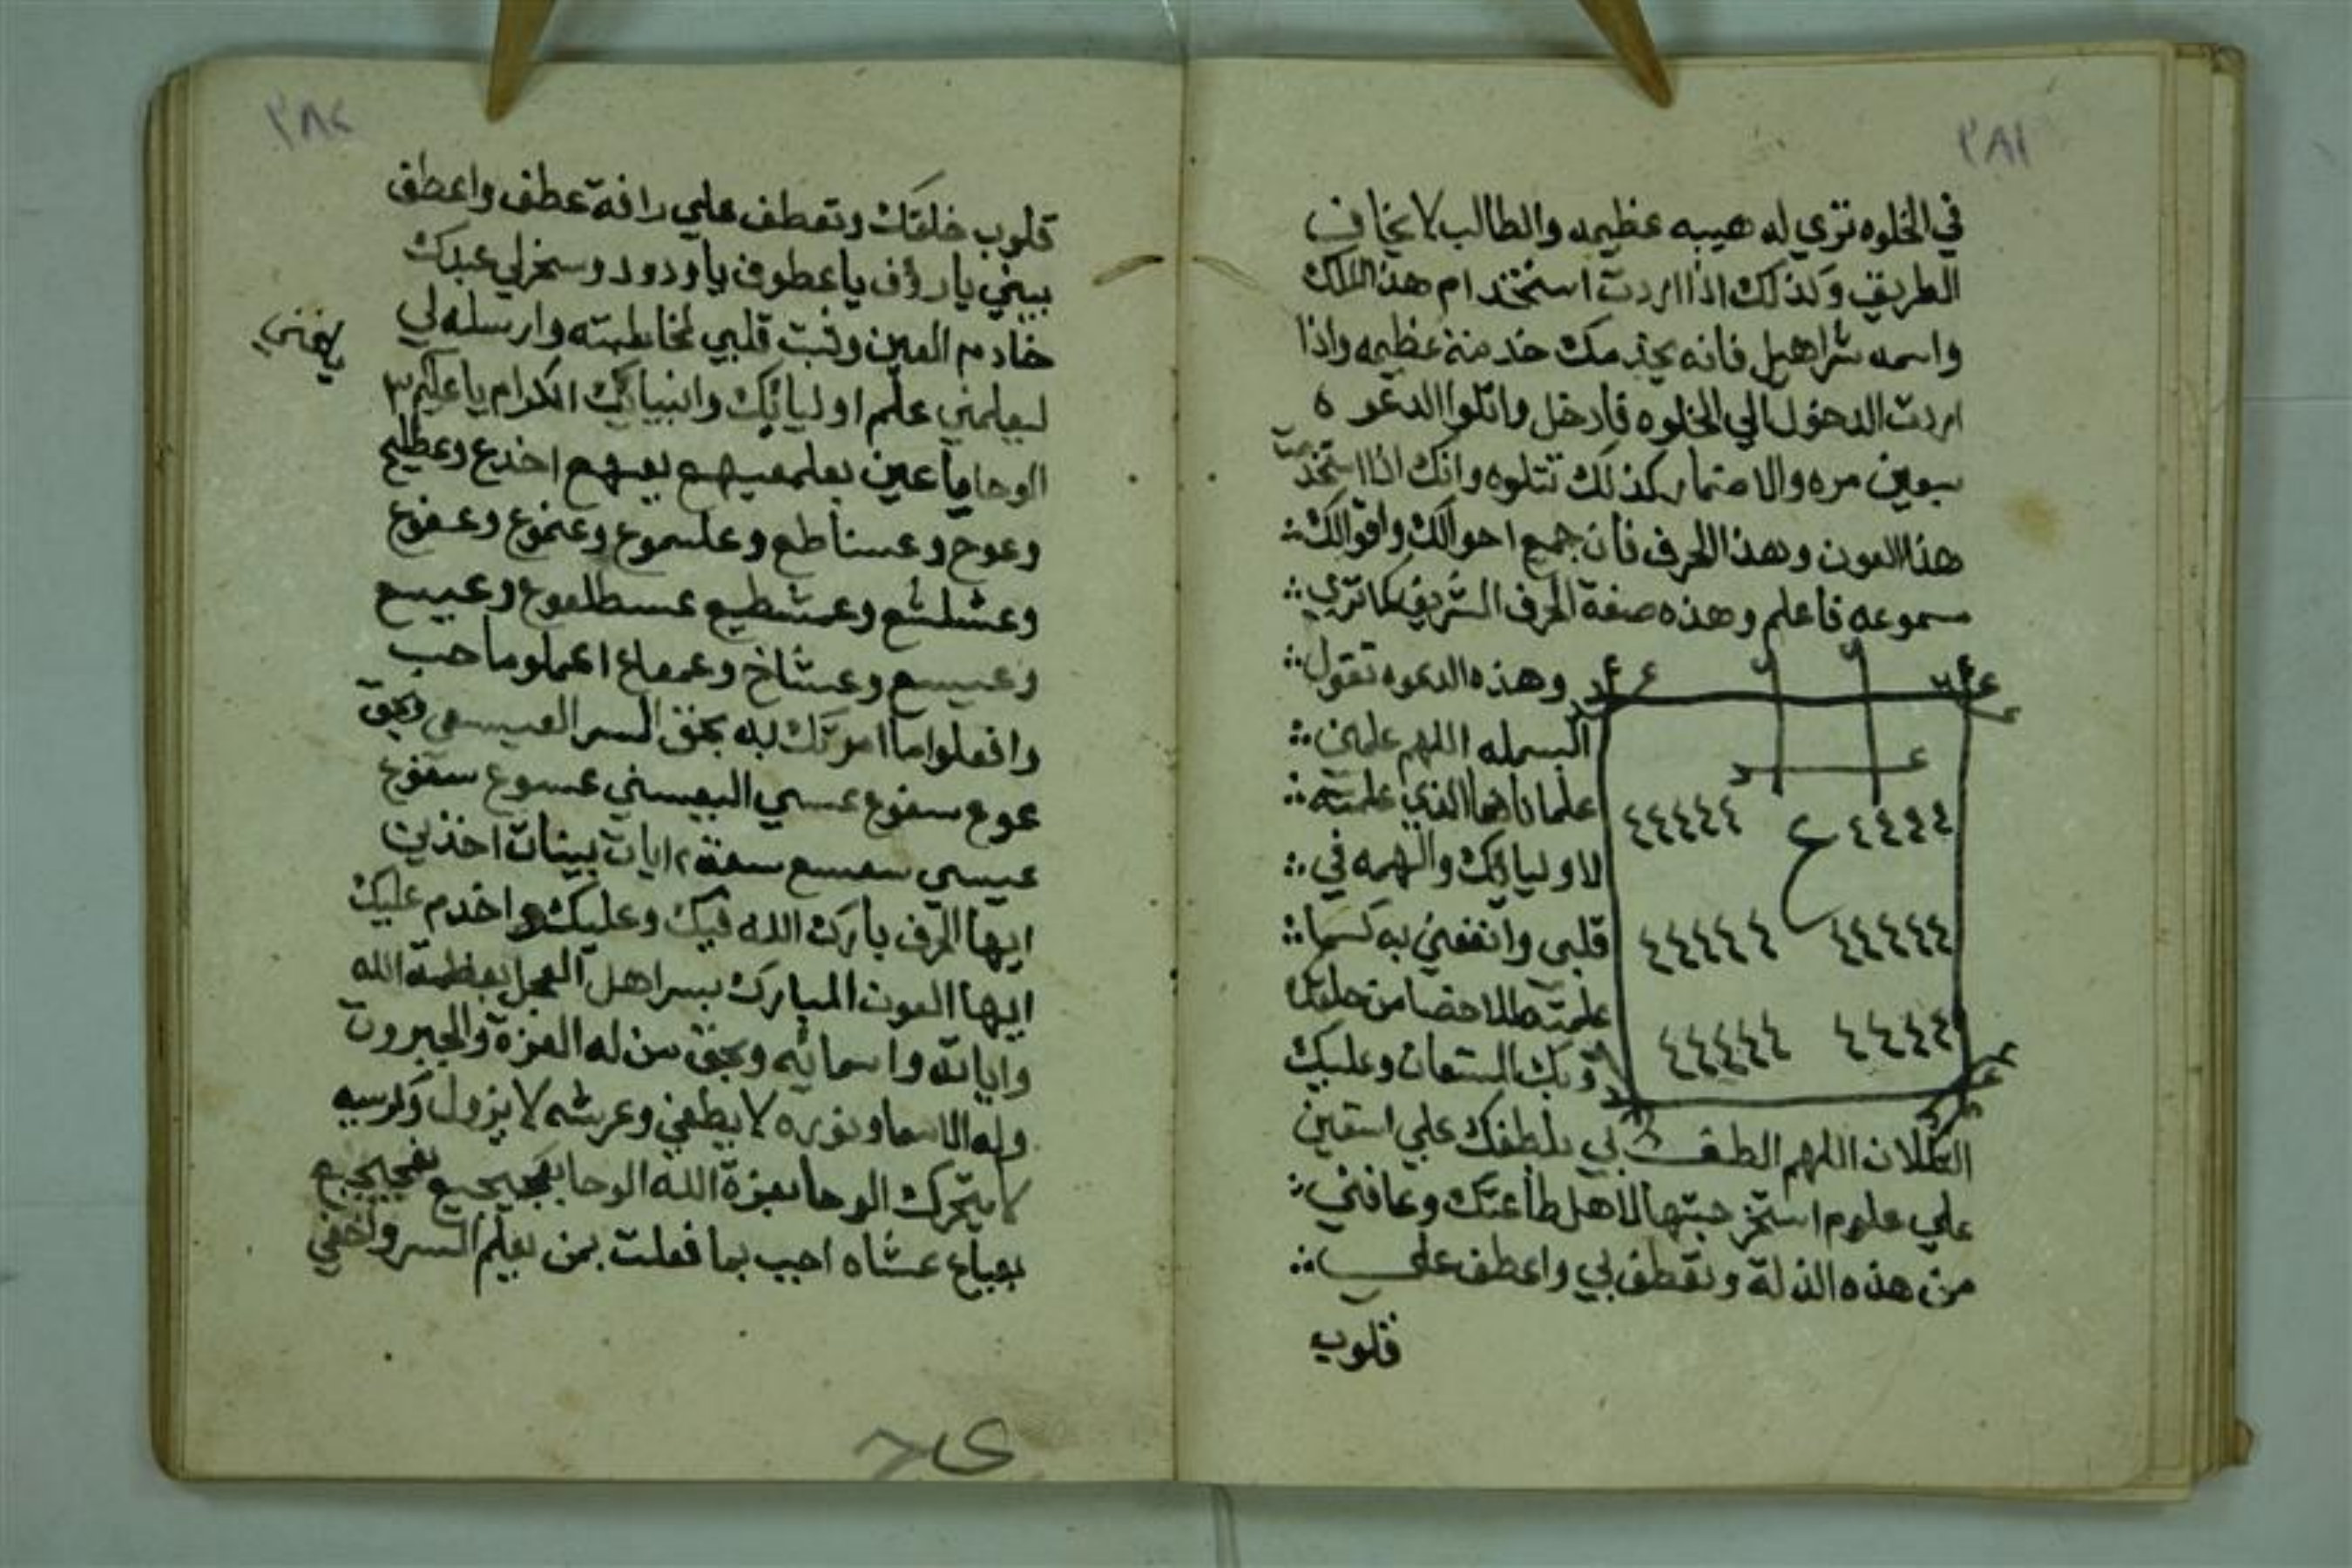 ٢٨١
في الخلوه تري له هيبه عظيمه والطالب لا يخاف
الطريق وكذلك اذا اردت استخدام هذا الملك
واسمه شراهيل فانه يخدمك خدمة عظيمه واذا
اردت الدخول الي الخلوه فادخل واتلوا الدعوه
سبعين مره والاضمار كذلك تتلوه وانك اذا استخدمت
هذا العون وهذا الحرف فان جميع احوالك واقوالك
مسموعه فاعلم وهذه صفة الحرف الشريف كما تري
وهذه الدعوه تقول
البسمله اللهم علمني
علما نافعا الذي علمته
لاوليائك والهمه في
قلبي وانفعني به كما
علمته من خلقك
وبك المستعان وعليك
ع
٤٤٤٤ ٤٤٤٤٤
٤٤٤٤٤ ٤٤٤٤٤
٤٤٤٤ ٤٤٤٤٤
التكلان اللهم الطف بي بلطفك علي
علي علوم استخرجتها لاهل طاعتك وعافني
من هذه الذلة وتعطف بي واعطف علي
قلوب
٢٨٢
قلوب خلقك وتعطف علي رافة عطف واعطف
ببيني يا رؤف يا عطوف يا ودود وسخر لي عبدك
خادم العين وثبت قلبي لمخاطبته وارسله لي
ليعلمني علم اوليائك وانبيائك الكرام يا عليم ٣
الوحا يا عين وعظليع
وعوج وعسناطع وعلسموع وعنموع وعفوع
وعشلشع وعمشطيع عسطلعوع وعبيع
وعيسع وعشاخ اعملوا ما احب
وافعلوا ما امرتك به بحق السر العيسعي وبحق
عوع سعنوع عسي عسوع سعنوع
عيسي سعسع ايات بينات اخذيت
ايها الحرف بارك الله فيك وعليك واخدم عليك
ايها العون المبارك بسراهل العجل بعظمة الله
واياته واسمائه وبحق من له العزة والجبروت
وله الاسما ونوره لا يطفي وعرشه لا يزول وكرسيه
لا يتحرك الوحا بعزة الله الوحا
عشاه اجيب بما فعلت بمن يعلم السر واخفي